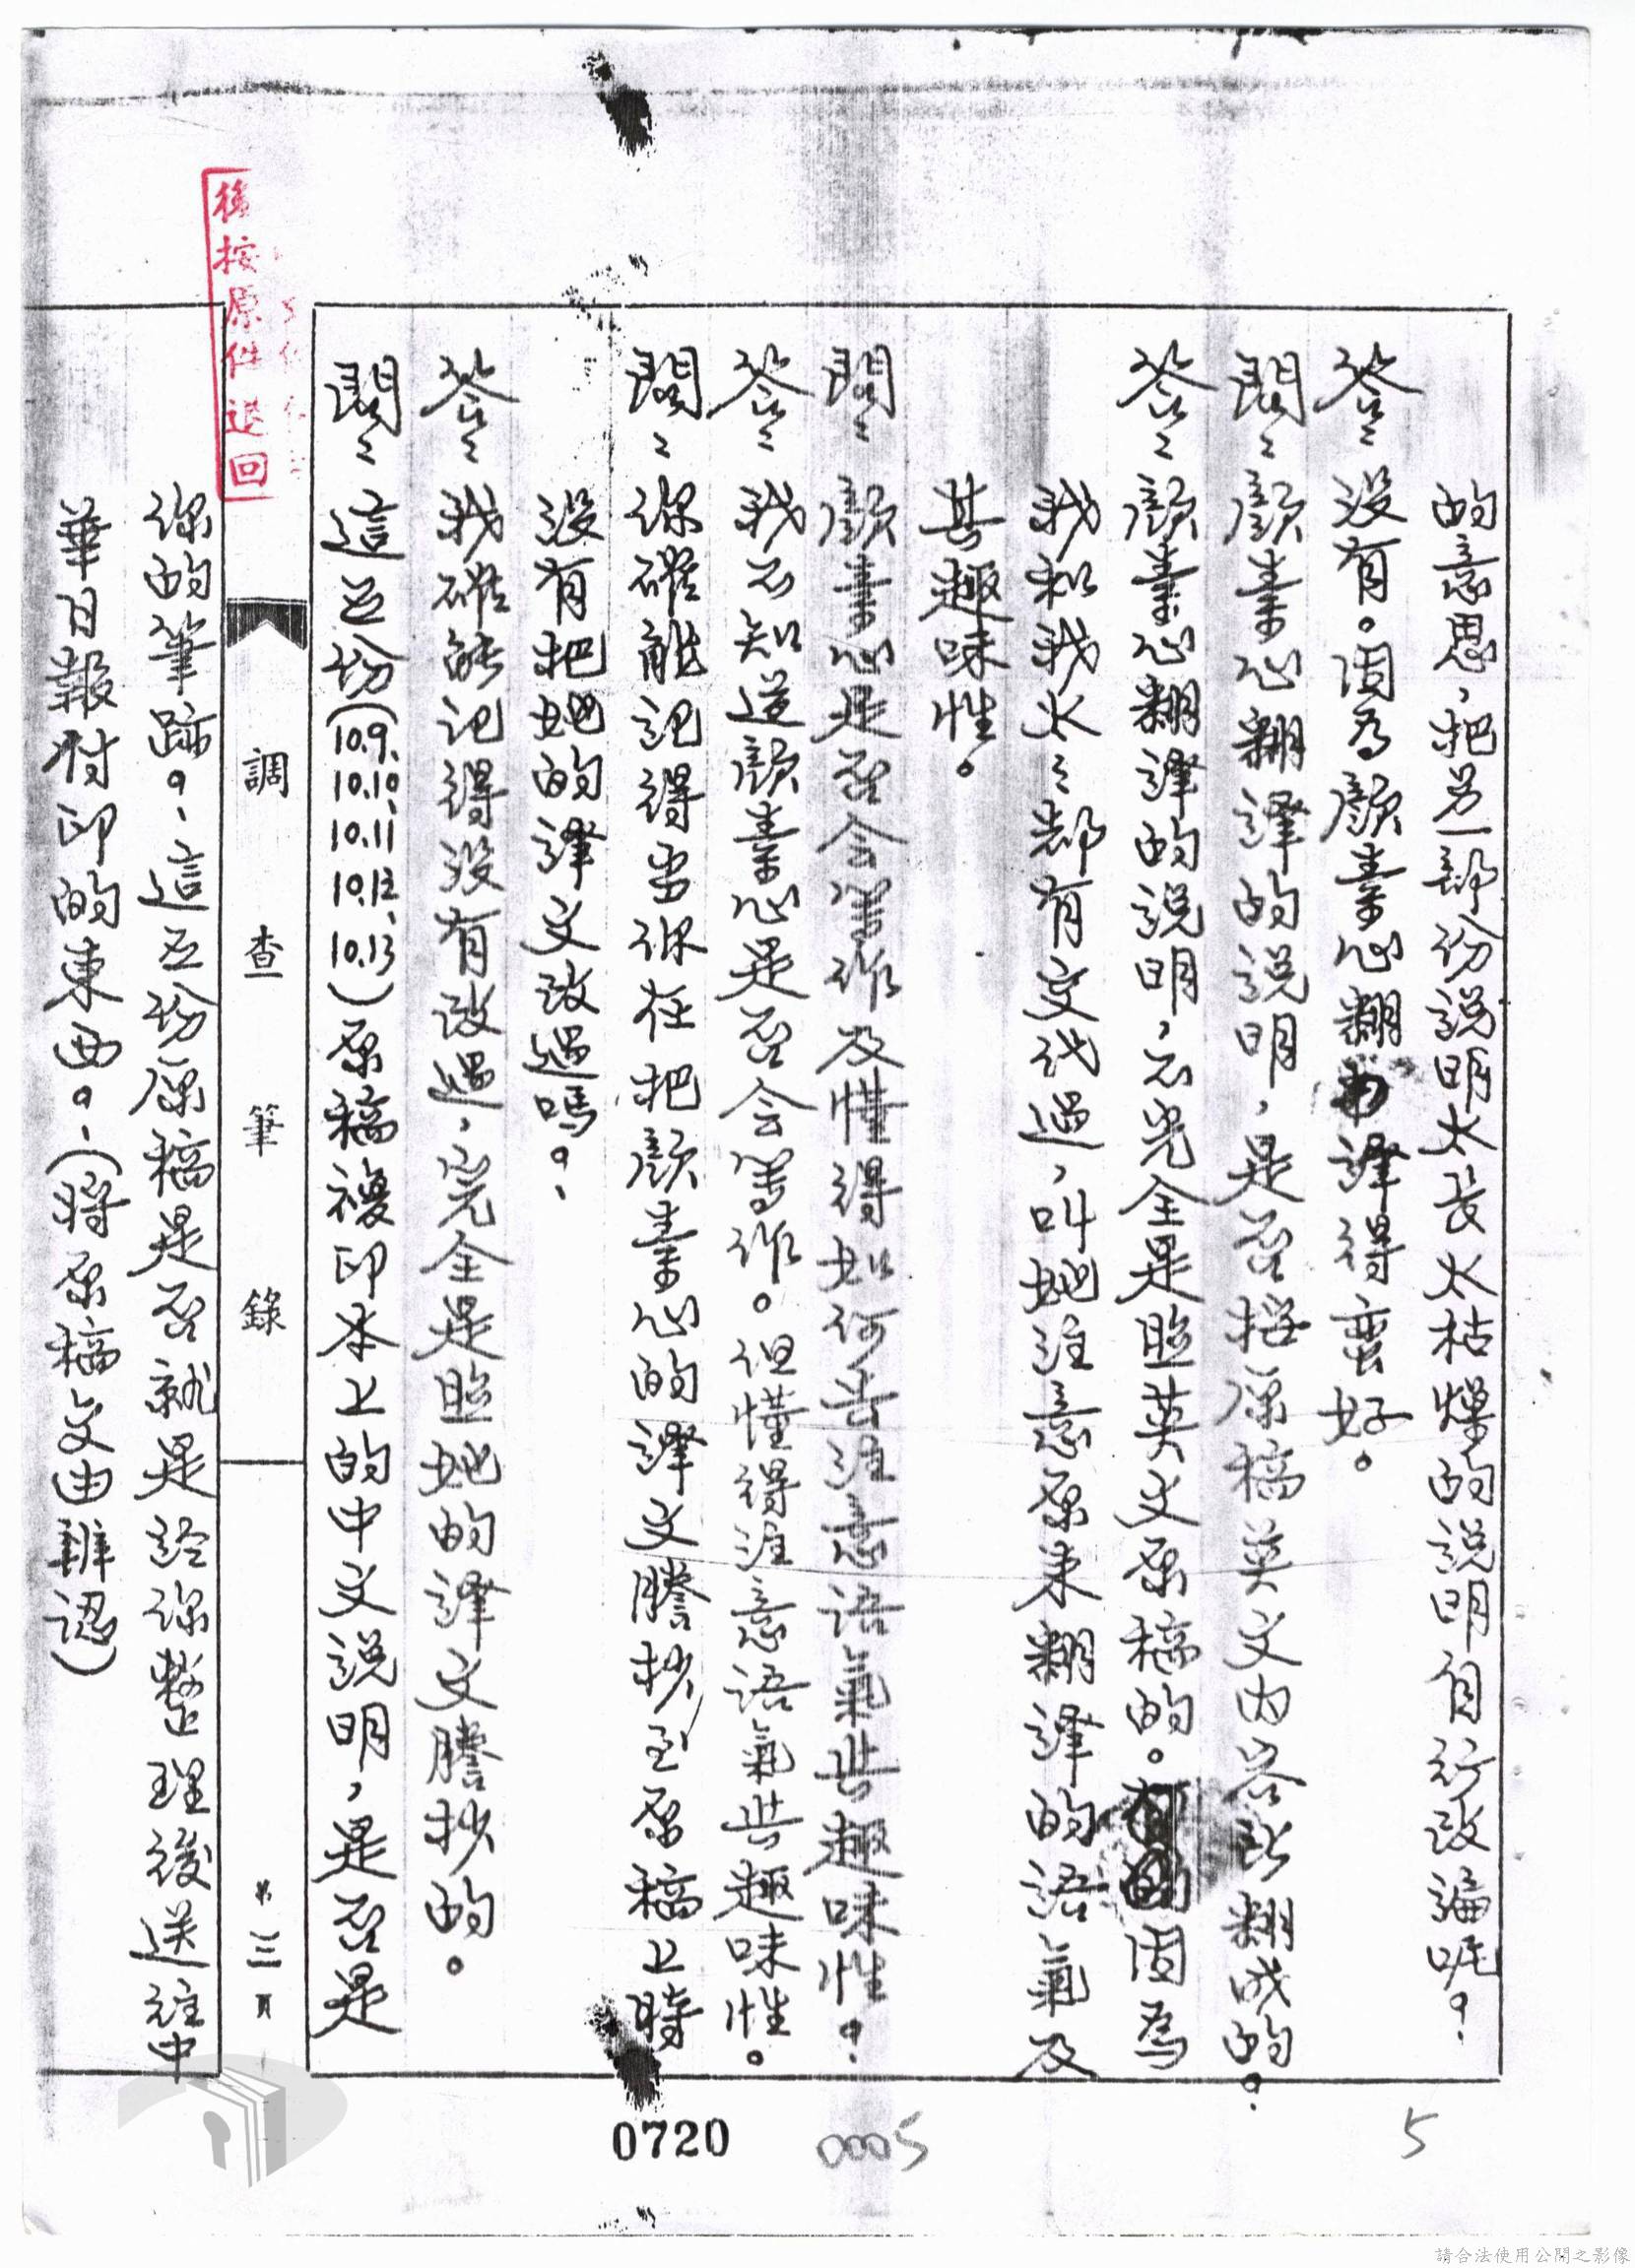 的意思，把另一部份說明太長太枯燥的說明自行改編呢？
答：沒有。因為顏素心翻譯得蠻好。
問：顏素心翻譯的說明，是否按原稿英文內容所翻成的？
答：顏素心翻譯的說明，不完全是照英文原稿的。因為
我和我太太都有交代過，叫她注意原來翻譯的語氣及
其趣味性。
問：顏素心是否會寫作及懂得如何去注意語氣與趣味性？
答：我不知道顏素心是否會寫作。但懂得注意語氣與趣味性。
問：你確能記得當你在把顏素心的譯文謄抄至原稿上時
沒有把她的譯文改過嗎？
答：我確能記得沒有改過，完全是照她的譯文謄抄的。
問：這五份(10.9、10.10、10.11、10.12、10.13)原稿複印本上的中文說明，是否是
調查筆錄
第三頁
你的筆跡？這五份原稿是否就是經你整理後送往中
華日報付印的東西？(將原稿交由辨認)
後按原件退回
0720
0005
5
請合法使用公開之影像